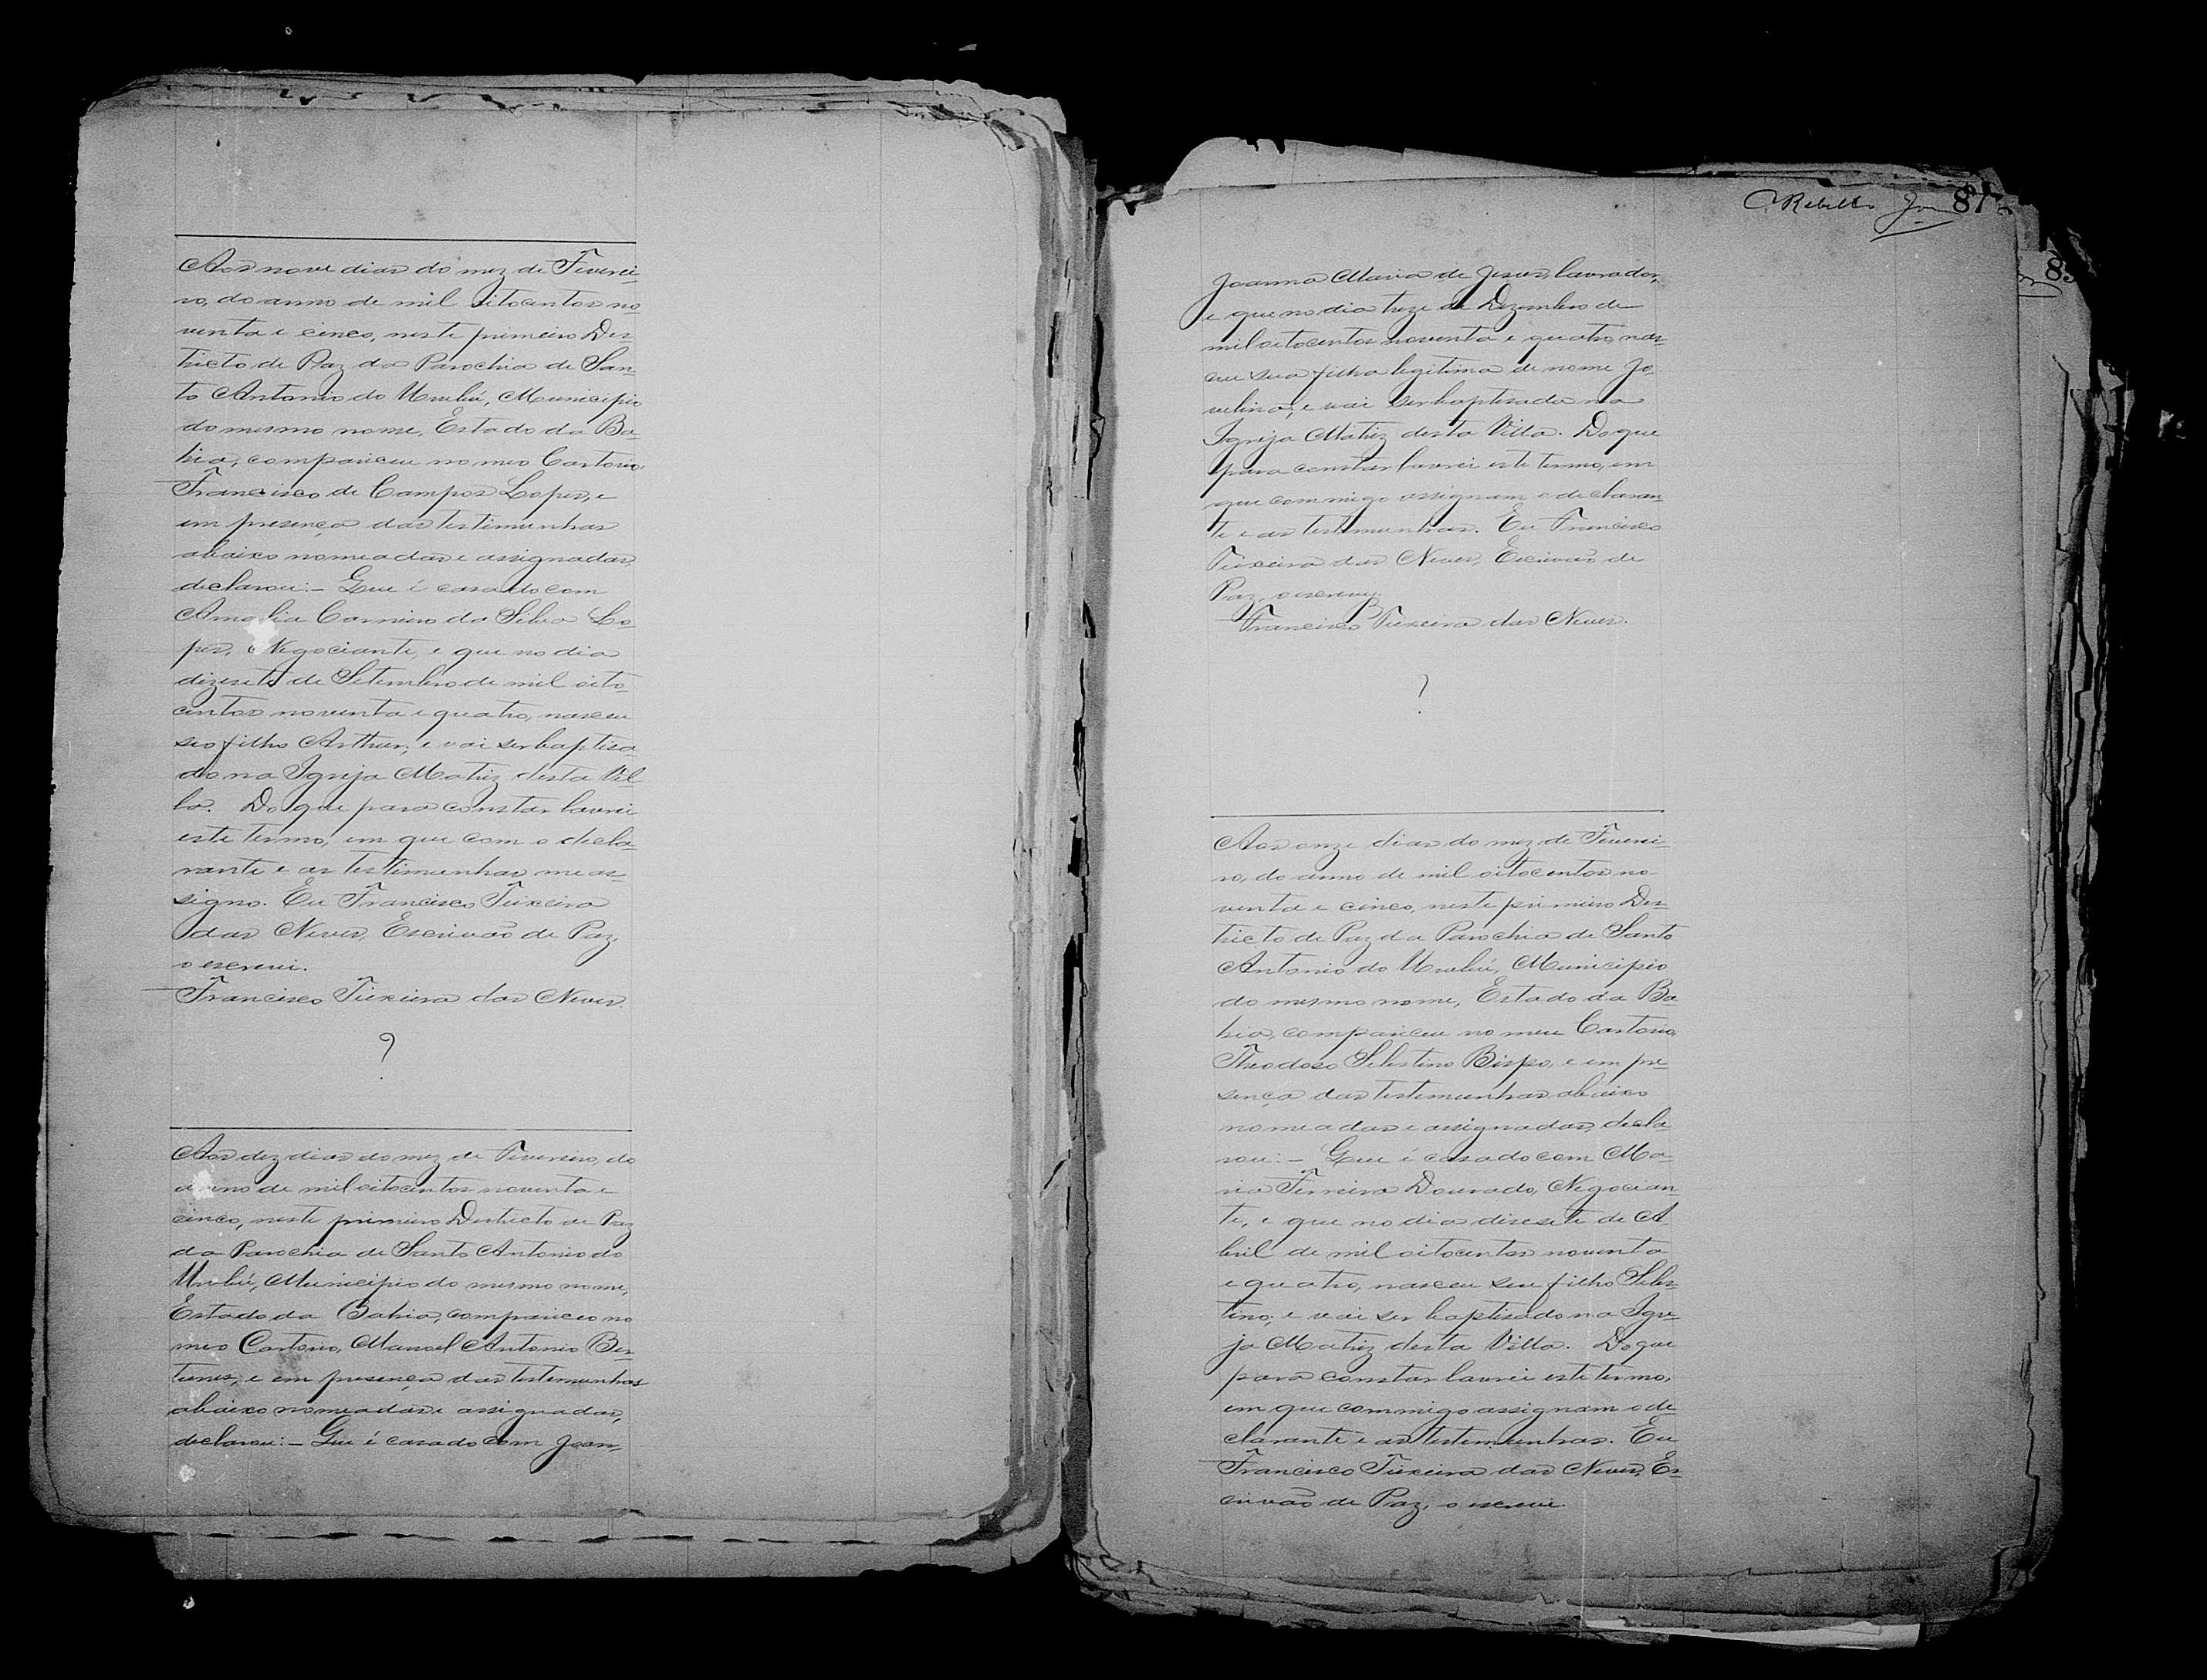 Aos nove dias do mez de Feverei-
ro, do anno de mil oitocentos no-
venta e cinco, neste primeiro Des-
tricto de Paz da Parochia de San-
to Antonio do Urubú, Municipio
do mesmo nome, Estado da Ba-
hia, compareceu no meo Cartorio,
Francisco de Campos Lopes, e
em presença das testimunhas
abaixo nomeadas e assignadas
declarou:- Que é casado com
Amalia Carneiro da Silva Lo-
pes, Negociante, e que no dia
dizesete de Setembro de mil oito-
centos noventa e quatro, nasceu
seo filho Arthur, e vai ser baptisa-
do na Igreja Matriz desta Vil
la. Do que para constar lavrei
este termo, em que com o decla-
rante e as testimunhas me as-
signo. Eu Francisco Teixeira
das Neves, Escrivão de Paz,
o escrevi.
Francisco Teixeira das Neves.
Aos dez dias do mez de Fevereiro, do
anno de mil oitocentos noventa e
cinco, neste primeiro Destricto de Paz
da Parochia de Santo Antonio do
Urubú, Municipio do mesmo nome,
Estado da Bahia, compareceo no
meo Cartorio, Manoel Antonio
e em presença das testemunhas
abaixo nomeadas e assignadas,
declarou:- Que é casado com Joan-
Rebello 87
Joanna Maria de Jesus, lavrador,
e que no dia treze de Dezembro de
mil oitocentos noventa e quatro, nas-
ceu sua filha legitima de nome Jo-
velina, e vai ser baptisada na
Igreja Matriz desta Villa. Do que
para constar lavrei este termo, em
que commigo assignam o declaran-
te e as testemunhas. Eu Francisco
Teixeira das Neves, Escrivão de
Paz, o escrevy.
Francisco Teixeira das Neves.
Aos onze dias do mez de Feverei-
ro, do anno de mil oitocentos no-
venta e cinco, neste primeiro Des-
tricto de Paz da Parochia de Santo
Antonio do Urubú, Municipio
do mesmo nome, Estado da Ba-
hia, compareceu no meu Cartorio,
Theodoso Selestino Bispo, e em pre-
sença das testemunhas abaixo
nomeadas e assignadas, decla-
rou:- Que é casado com Ma-
ria Ferreira Dourado, Negocian-
te, e que no dia diseséte de A
bril de mil oitocentos noventa
e quatro, nasceu seu filho Seles-
tino, e vai ser baptisado na Igre-
ja Matriz desta Villa. Do que
para constar lavrei este termo,
em que commigo assignam o de
clarante e as testemunhas. Eu
Francisco Teixeira das Neves, Es-
crivão de Paz, o escrevi.